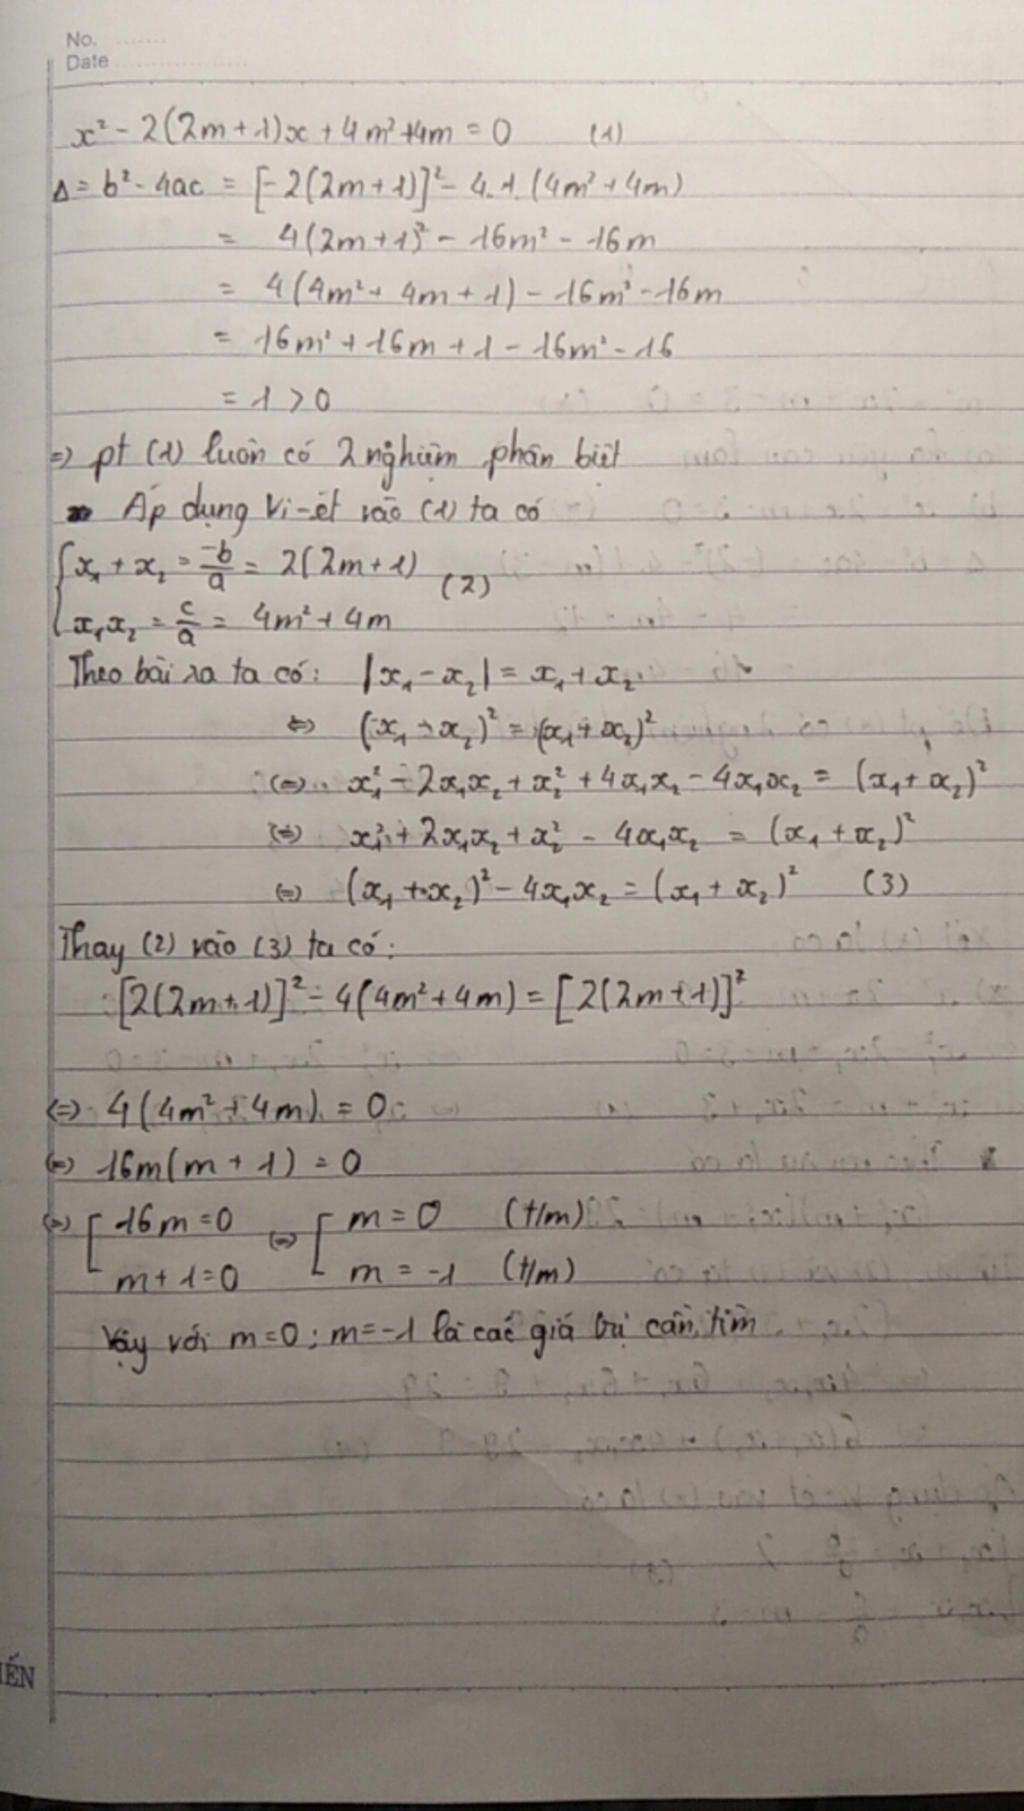 No.
Date
x² - 2(2m+1)x + 4m² + 4m = 0 (1)
Δ = b² - 4ac = [-2(2m+1)]² - 4.1.(4m² + 4m)
= 4(2m+1)² - 16m² - 16m
= 4(4m² + 4m + 1) - 16m² - 16m
= 16m² + 16m + 1 - 16m² - 16
= 1 > 0
=> pt (1) luôn có 2 nghiệm phân biệt
Áp dụng Vi-ét vào (1) ta có
{ x₁ + x₂ = -b/a = 2(2m+1)
(2)
x₁x₂ = c/a = 4m² + 4m
Theo bài ra ta có: |x₁ - x₂| = x₁ + x₂
⇔ (x₁ - x₂)² = (x₁ + x₂)²
⇔ x₁² - 2x₁x₂ + x₂² + 4x₁x₂ - 4x₁x₂ = (x₁ + x₂)²
⇔ x₁² + 2x₁x₂ + x₂² - 4x₁x₂ = (x₁ + x₂)²
⇔ (x₁ + x₂)² - 4x₁x₂ = (x₁ + x₂)² (3)
Thay (2) vào (3) ta có:
[2(2m+1)]² - 4(4m² + 4m) = [2(2m+1)]²
⇔ 4(4m² + 4m) = 0
⇔ 16m(m + 1) = 0
⇔ [ 16m = 0 ⇔ [ m = 0 (t/m)
m + 1 = 0 m = -1 (t/m)
Vậy với m = 0 ; m = -1 là các giá trị cần tìm
IẾN